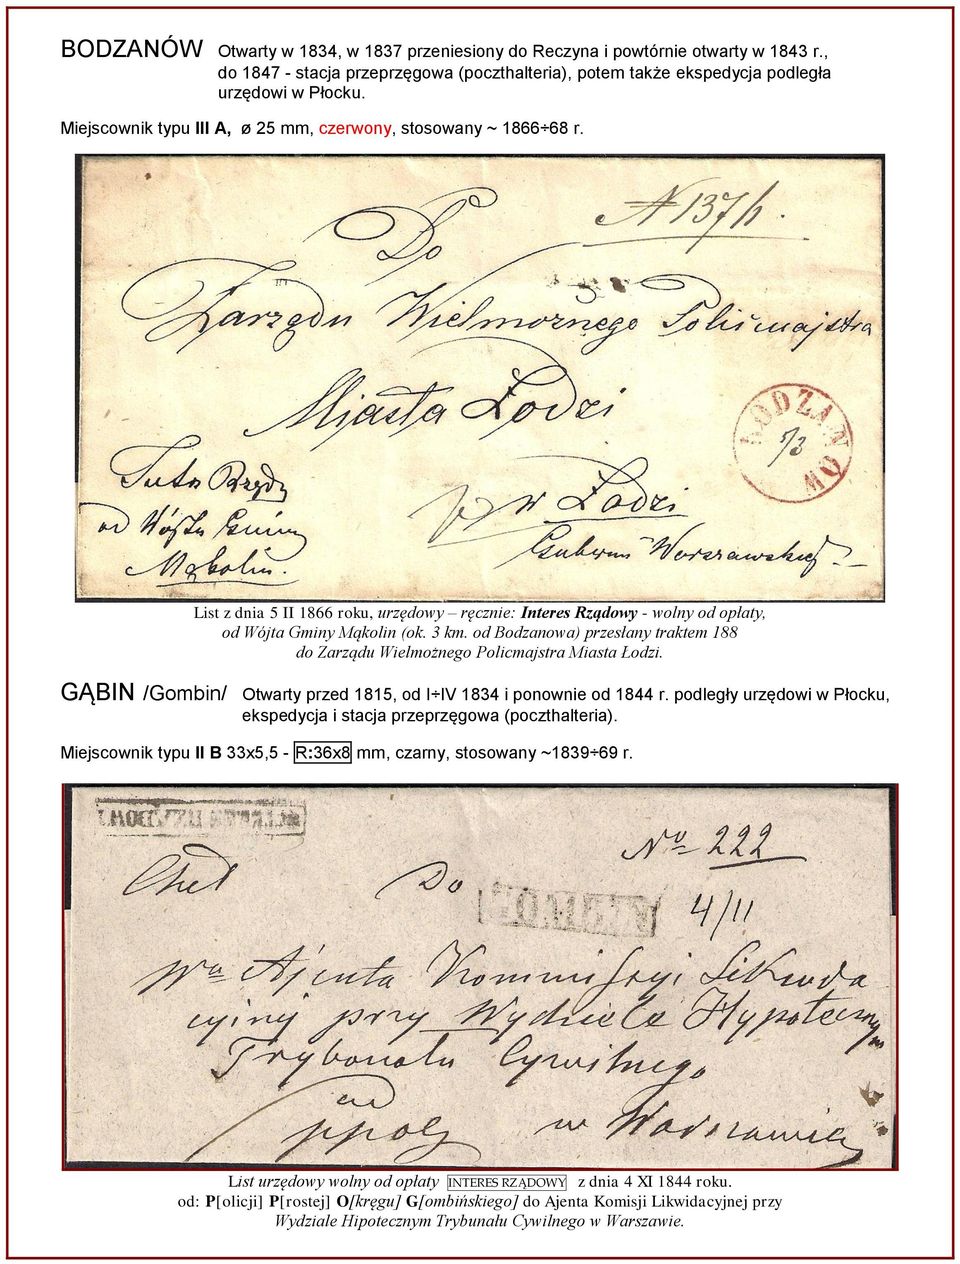 BODZANÓW Otwarty w 1834, w 1837 przeniesiony do Reczyna i powtórnie otwarty w 1843 r.,
do 1847 - stacja przeprzęgowa (poczthalteria), potem także ekspedycja podległa
urzędowi w Płocku.
Miejscownik typu III A, ø 25 mm, czerwony, stosowany ~ 1866÷68 r.
N 137/h.
Do
Zarządu Wielmożnego Policmajstra
Miasta Łodzi
BODZANOW
5/3
Interes Rządy
od Wójta Gminy
Mąkolin.
w Łodzi
Gubernii Warszawskiej
List z dnia 5 II 1866 roku, urzędowy – ręcznie: Interes Rządowy - wolny od opłaty,
od Wójta Gminy Mąkolin (ok. 3 km. od Bodzanowa) przesłany traktem 188
do Zarządu Wielmożnego Policmajstra Miasta Łodzi.
GĄBIN /Gombin/ Otwarty przed 1815, od I÷IV 1834 i ponownie od 1844 r. podległy urzędowi w Płocku,
ekspedycja i stacja przeprzęgowa (poczthalteria).
Miejscownik typu II B 33x5,5 - R:36x8 mm, czarny, stosowany ~1839÷69 r.
No 222
Do
4/11
Wo Ajenta Kommissyi Likwida
cyjney przy Wydziele Hypoteczny
Trybonału Cywilnego
w Warszawie
List urzędowy wolny od opłaty INTERES RZĄDOWY z dnia 4 XI 1844 roku.
od: P[olicji] P[rostej] O[kręgu] G[ombińskiego] do Ajenta Komisji Likwidacyjnej przy
Wydziale Hipotecznym Trybunału Cywilnego w Warszawie.